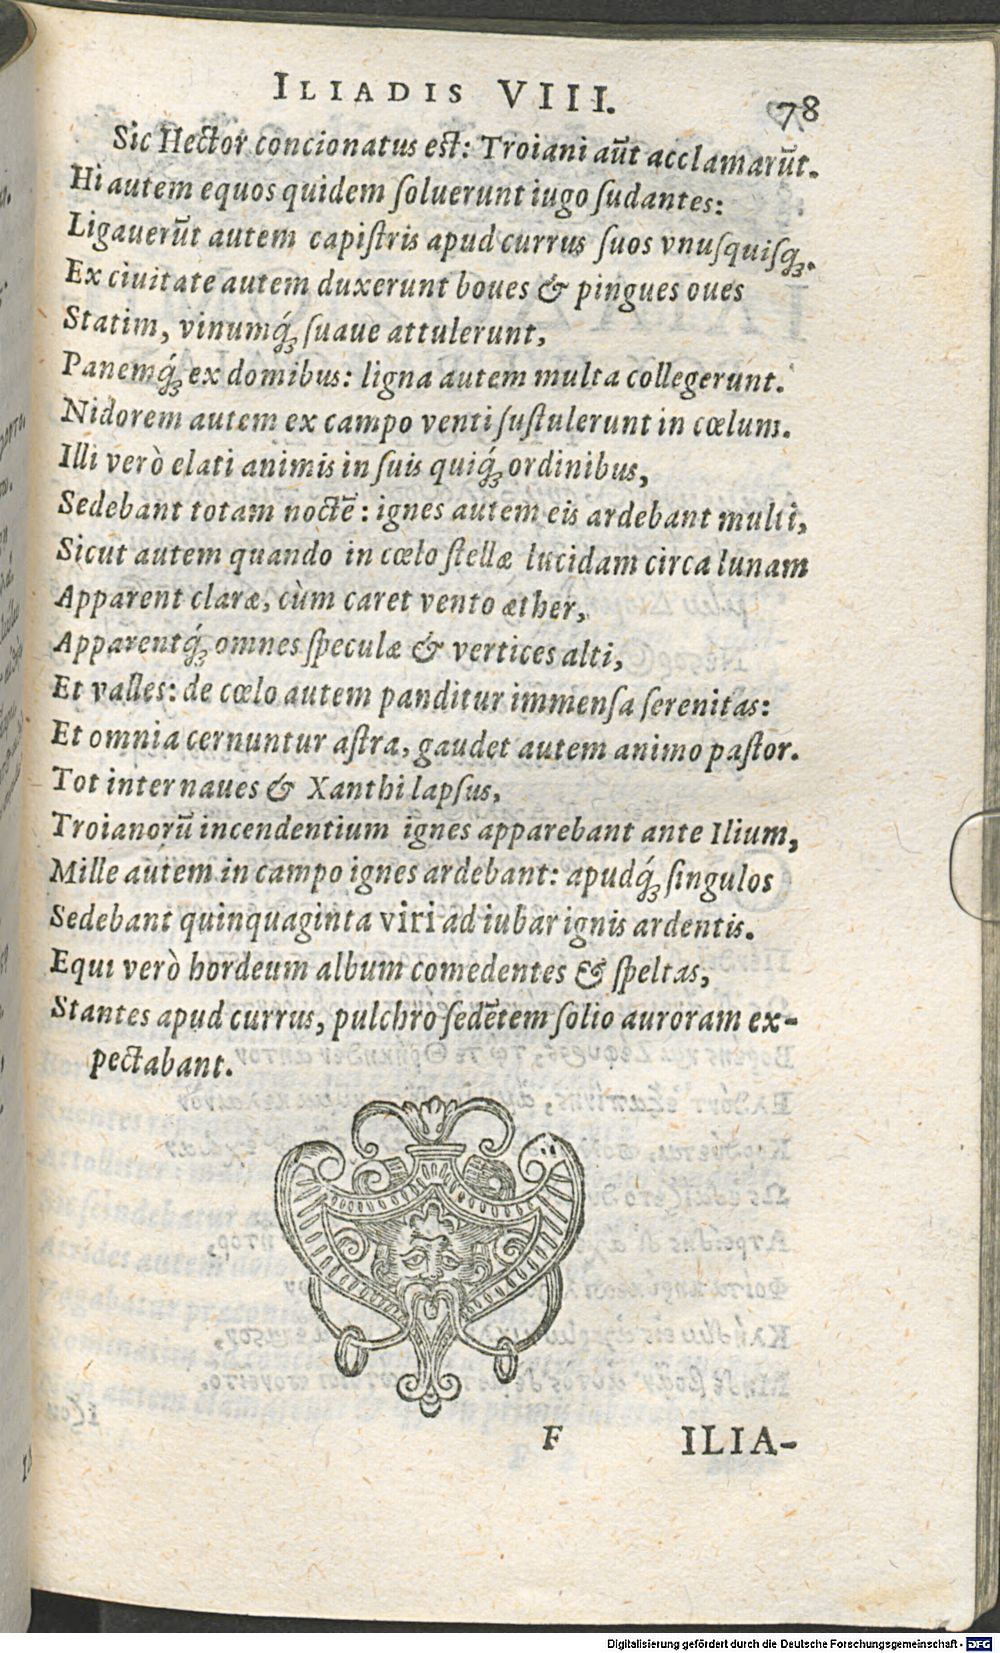 ILIADIS VIII. 78
Sic Hector concionatus est: Troiani aūt acclamarūt.
Hi autem equos quidem ſoluerunt iugo ſudantes:
Ligauerūt autem capiſtris apud currus ſuos vnuſquiſq́ꝫ.
Ex ciuitate autem duxerunt boues & pingues oues
Statim, vinumq́ꝫ ſuaue attulerunt,
Panemq́ꝫ ex domibus: ligna autem multa collegerunt.
Nidorem autem ex campo venti ſuſtulerunt in cœlum.
Illi verò elati animis in ſuis quiq́ꝫ ordinibus,
Sedebant totam noctē: ignes autem eis ardebant multi,
Sicut autem quando in cœlo ſtellæ lucidam circa lunam
Apparent claræ, cùm caret vento æther,
Apparentq́ꝫ omnes ſpeculæ & vertices alti,
Et valles: de cœlo autem panditur immenſa ſerenitas:
Et omnia cernuntur aſtra, gaudet autem animo paſtor.
Tot inter naues & Xanthi lapſus,
Troianorū incendentium ignes apparebant ante Ilium,
Mille autem in campo ignes ardebant: apudq́ꝫ ſingulos
Sedebant quinquaginta viri ad iubar ignis ardentis.
Equi verò hordeum album comedentes & ſpeltas,
Stantes apud currus, pulchro ſedētem ſolio auroram ex-
pectabant.
F ILIA-
Digitalisierung gefördert durch die Deutsche Forschungsgemeinschaft - DFG